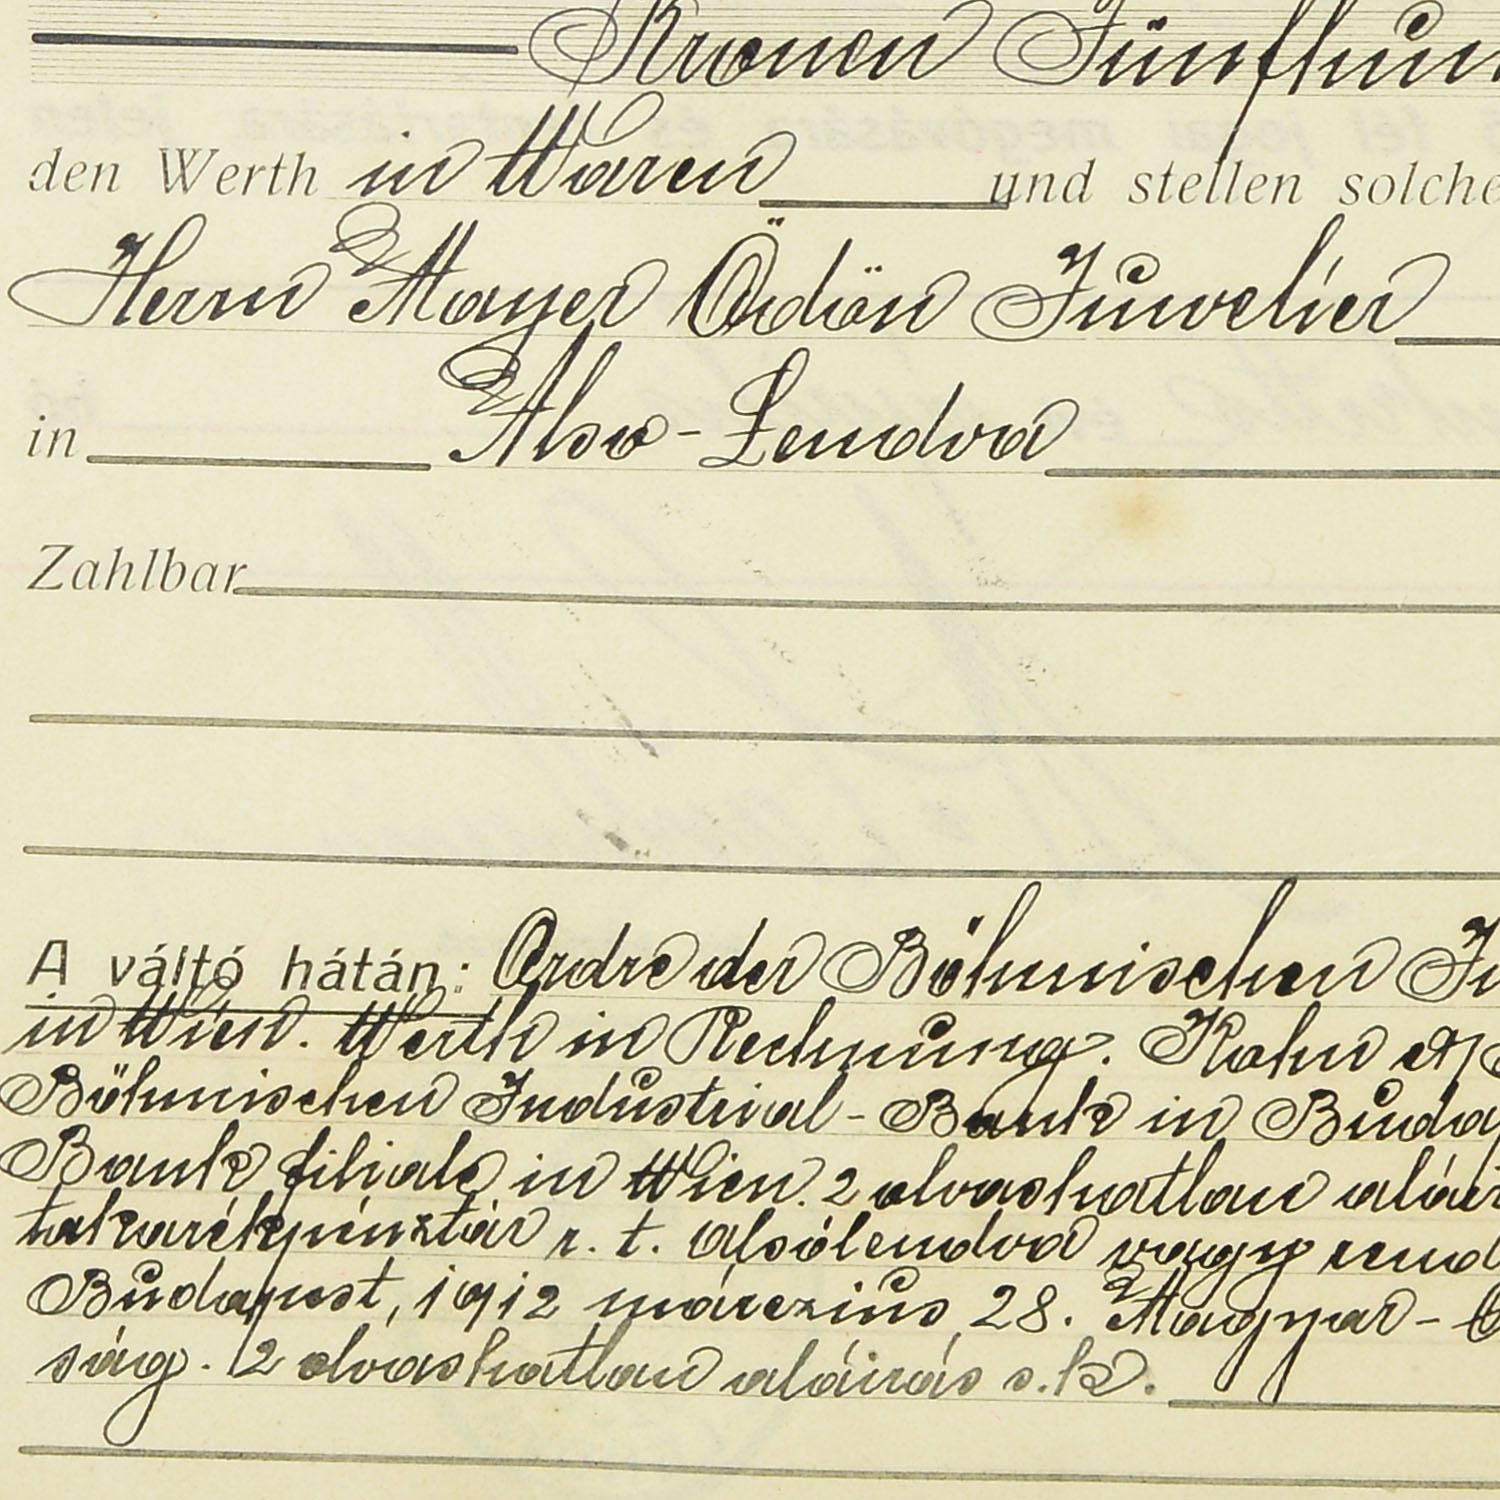 Kronen Fünfhun
den Werth in Waren und stellen solche
Herrn Mayer Ödön Juwelier
in Alsó-Lendva
Zahlbar
A váltó hátán: Ordre der Böhmischen In
in Wien. Werth in Rechnung. Kohn
Böhmischen Industrial-Bank in Budap
Bank filiale in Wien. 2 olvashatlan aláir
takarékpénztár r. t. Alsólendva vagy rend
Budapest, 1912 márczius 28. Magyar-
ság. 2 olvashatlan aláirás s.k.